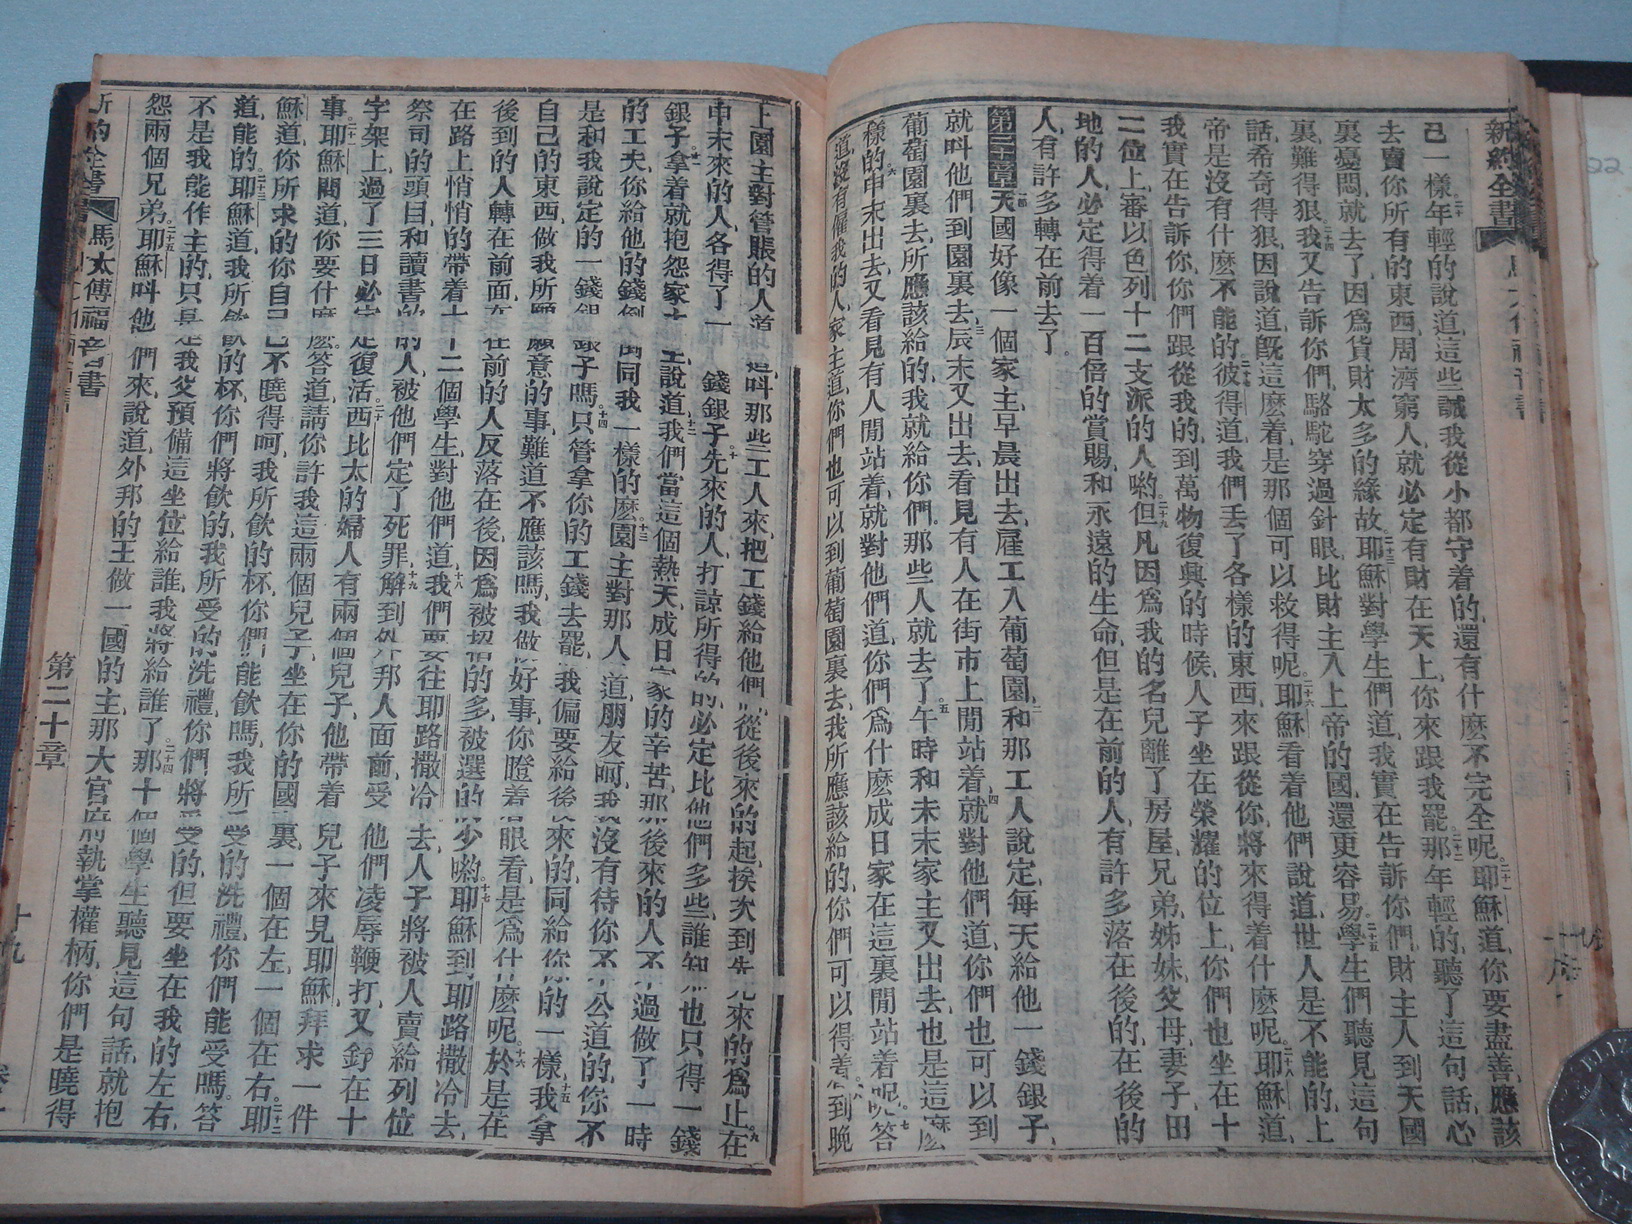 新約全書
己一樣年輕的說道這些誡我從小都守着的還有什麽不完全呢耶穌道你要盡善應該
去賣你所有的東西周濟窮人就必定有財在天上你來跟我罷那年輕的聽了這句話心
裏憂悶就去了因爲貨財太多的緣故耶穌對學生們道我實在告訴你們財主人到天國
裏難得狠我又告訴你們駱駝穿過針眼比財主入上帝的國還更容易學生們聽見這句
話希奇得狠因說道旣這麽着是那個可以救得呢耶穌看着他們說道世人是不能的上
帝是沒有什麽不能的彼得道我們丟了各樣的東西來跟從你將來得着什麽呢耶穌道
我實在告訴你你們跟從我的到萬物復興的時候人子坐在榮耀的位上你們也坐在十
二位上審以色列十二支派的人喲但凡因爲我的名兒離了房屋兄弟姊妹父母妻子田
地的人必定得着一百倍的賞賜和永遠的生命但是在前的人有許多落在後的在後的
人有許多轉在前去了
第二十章一節天國好像一個家主早晨出去雇工入葡萄園和那工人說定每天給他一錢銀子
就呌他們到園裏去辰末又出去看見有人在街市上閒站着就對他們道你們也可以到
葡萄園裏去所應該給的我就給你們那些人就去了午時和未末家主又出去也是這麽
樣的申末出去又看見有人閒站着就對他們道你們爲什麽成日家在這裏閒站着呢答
道沒有僱我的人家主道你們也可以到葡萄園裏去我所應該給的你們可以得着到晚
上園主對管賬的人道呌那些工人來把工錢給他們從後來的起挨次到先來的爲止在
申末來的人各得了一錢銀子先來的人打諒所得的必定比他們多些誰知也只得一錢
銀子拿着就抱怨家主說道我們當這個熱天成日家的辛苦那後來的人不過做了一時
的工夫你給他的錢倒同我一樣的麽園主對那人道朋友呵我沒有待你不公道的你不
是和我說定的一錢銀子嗎只管拿你的工錢去罷我偏要給後來的同給你的一樣我拿
自己的東西做我所願意的事難道不應該嗎我做好事你瞪着眼看是爲什麽呢於是在
後到的人轉在前面在前的人反落在後因爲被招的多被選的少喲耶穌到耶路撒冷去
在路上悄悄的帶着十二個學生對他們道我們要往耶路撒冷去人子將被人賣給列位
祭司的頭目和讀書的人被他們定了死罪解到外邦人面前受他們凌辱鞭打又釘在十
字架上過了三日必定復活西比太的婦人有兩個兒子他帶着兒子來見耶穌拜求一件
事耶穌問道你要什麽答道請你許我這兩個兒子坐在你的國裏一個在左一個在右耶
穌道你所求的你自己不曉得呵我所飮的杯你們能飮嗎我所受的洗禮你們能受嗎答
道能的耶穌道我所飮的杯你們將飮的我所受的洗禮你們將受的但要坐在我的左右
不是我能作主的只是我父預備這坐位給誰我將給誰了那十個學生聽見這句話就抱
怨兩個兄弟耶穌呌他們來說道外邦的王做一國的主那大官府執掌權柄你們是曉得
新約全書 馬太傅福音書 第二十章 十九